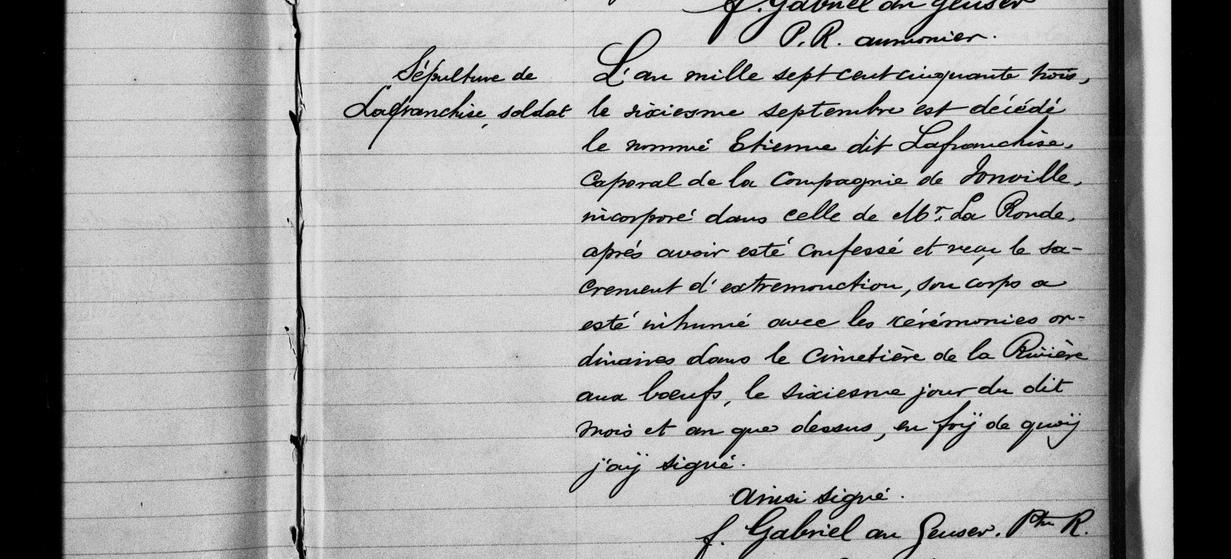 f. Gabriel au Geuser
P. R. aumonier.
Sépulture de
Lafranchise, soldat
L'an mille sept cent cinquante trois,
le sixiesme septembre est décédé
le nommé Etienne dit Lafranchise,
caporal de la compagnie de Jonville,
incorporé dans celle de Mr. La Ronde,
aprés avoir esté confessé et reçu le sa-
crement d'extremonction, son corps a
esté inhumé avec les cérémonies or-
dinaires dans le cimetière de la Rivière
aux boeufs, le sixiesme jour du dit
mois et an que dessus, en foÿ de quoÿ
j'aÿ signé.
ainsi signé.
f. Gabriel au Geuser. Ptre R.